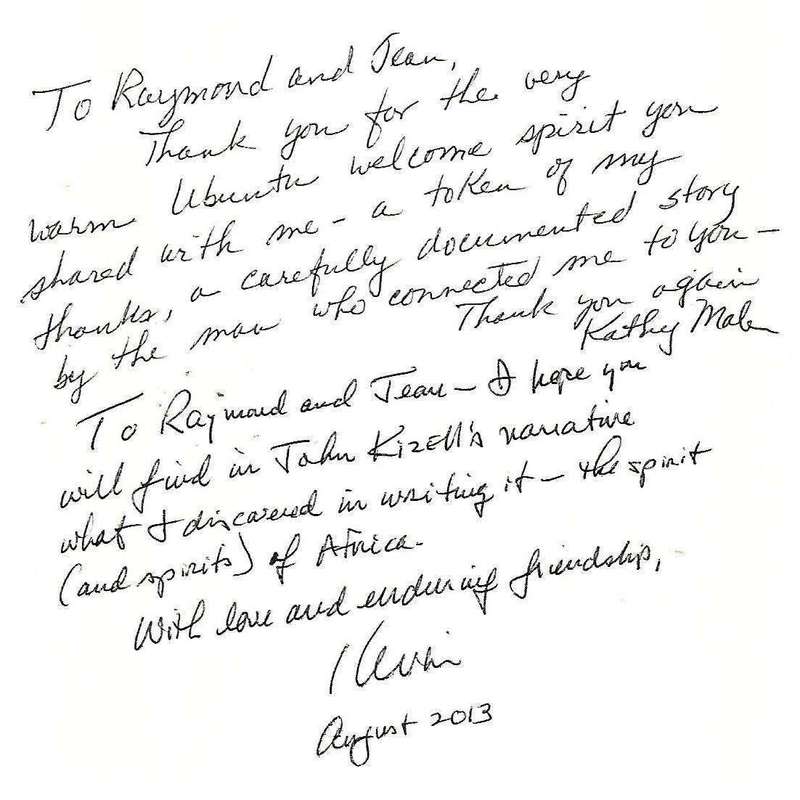 To Raymond and Jean,
Thank you for the very
warm Ubuntu welcome spirit you
shared with me - a token of my
thanks, a carefully documented story
by the man who connected me to you -
Thank you again
Kathy
To Raymond and Jean - I hope you
will find in John Kizell's narrative
what I discovered in writing it - the spirit
(and spirits) of Africa.
With love and enduring friendship,
Kevin
August 2013